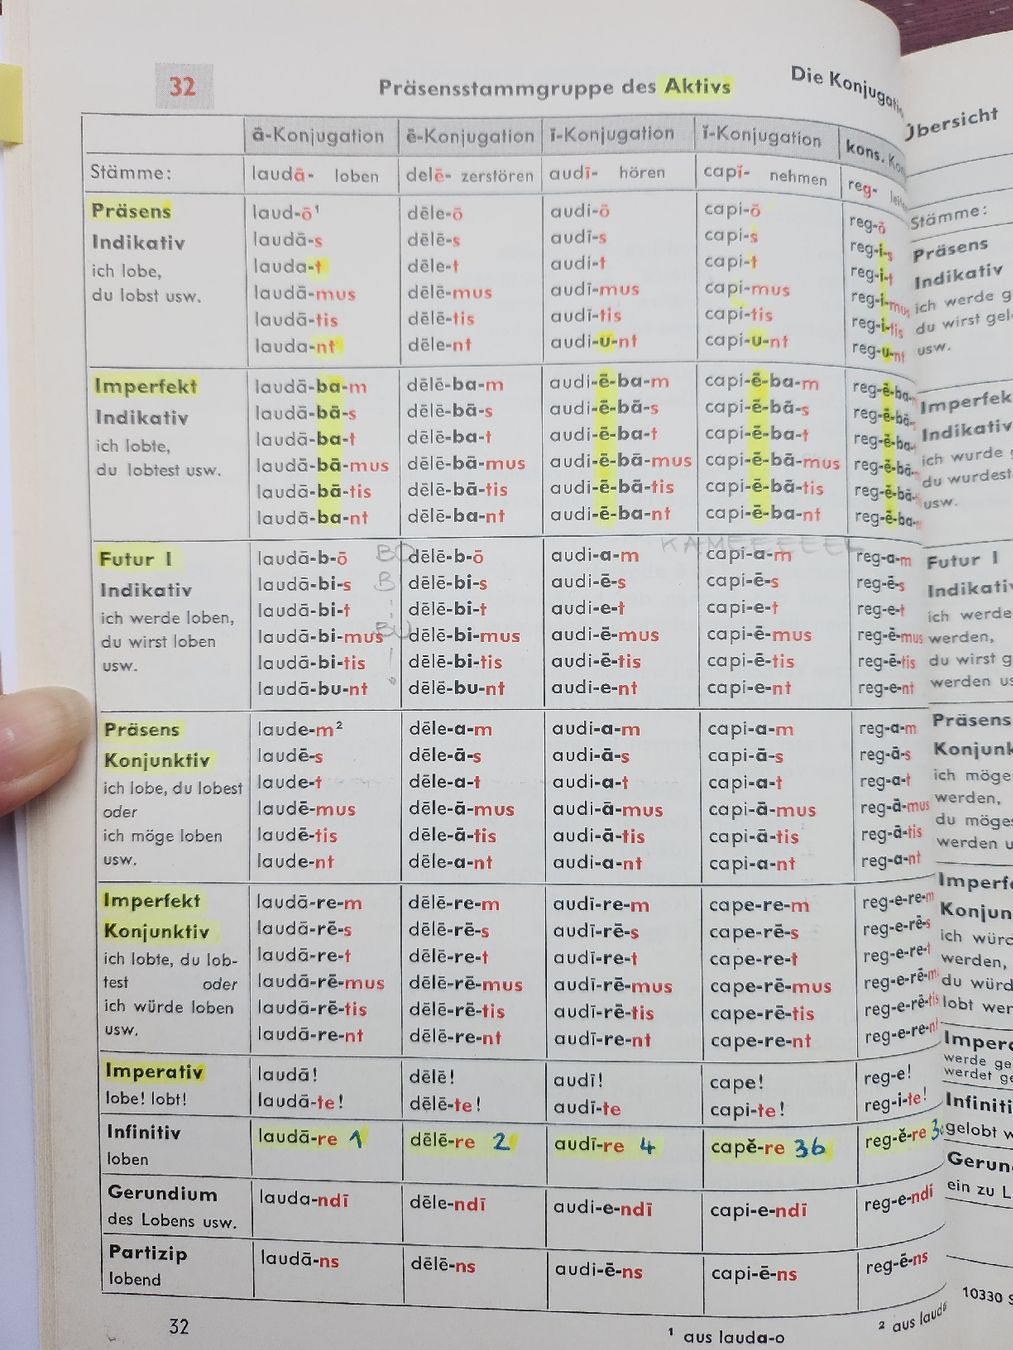 32 Präsensstammgruppe des Aktivs Die
ā-Konjugation ē-Konjugation ī-Konjugation ĭ-Konjugation kons.
Stämme: laudā- loben delē- zerstören audī- hören capĭ- nehmen reg-
Präsens laud-ō¹ dēle-ō audi-ō capi-ō reg-ō
Indikativ laudā-s dēlē-s audī-s capi-s reg-i-s
ich lobe, lauda-t dēle-t audi-t capi-t reg-i-t
du lobst usw. laudā-mus dēlē-mus audī-mus capi-mus reg-i-mus
laudā-tis dēlē-tis audī-tis capi-tis reg-i-tis
lauda-nt dēle-nt audi-u-nt capi-u-nt reg-u-nt
Imperfekt laudā-ba-m dēlē-ba-m audi-ē-ba-m capi-ē-ba-m reg-ē-ba-
Indikativ laudā-bā-s dēlē-bā-s audi-ē-bā-s capi-ē-bā-s reg-ē-bā-
ich lobte, laudā-ba-t dēlē-ba-t audi-ē-ba-t capi-ē-ba-t reg-ē-ba-
du lobtest usw. laudā-bā-mus dēlē-bā-mus audi-ē-bā-mus capi-ē-bā-mus reg-ē-bā-
laudā-bā-tis dēlē-bā-tis audi-ē-bā-tis capi-ē-bā-tis reg-ē-bā-
laudā-ba-nt dēlē-ba-nt audi-ē-ba-nt capi-ē-ba-nt reg-ē-ba-
Futur I laudā-b-ō BO dēlē-b-ō audi-a-m capi-a-m reg-a-m
Indikativ laudā-bi-s B dēlē-bi-s audi-ē-s capi-ē-s reg-ē-s
ich werde loben, laudā-bi-t dēlē-bi-t audi-e-t capi-e-t reg-e-t
du wirst loben laudā-bi-mus BU dēlē-bi-mus audi-ē-mus capi-ē-mus reg-ē-mus
usw. laudā-bi-tis dēlē-bi-tis audi-ē-tis capi-ē-tis reg-ē-tis
laudā-bu-nt dēlē-bu-nt audi-e-nt capi-e-nt reg-e-nt
Präsens laude-m² dēle-a-m audi-a-m capi-a-m reg-a-m
Konjunktiv laudē-s dēle-ā-s audi-ā-s capi-ā-s reg-ā-s
ich lobe, du lobest laude-t dēle-a-t audi-a-t capi-a-t reg-a-t
oder laudē-mus dēle-ā-mus audi-ā-mus capi-ā-mus reg-ā-mus
ich möge loben laudē-tis dēle-ā-tis audi-ā-tis capi-ā-tis reg-ā-tis
usw. laude-nt dēle-a-nt audi-a-nt capi-a-nt reg-a-nt
Imperfekt laudā-re-m dēlē-re-m audī-re-m cape-re-m reg-e-re-m
Konjunktiv laudā-rē-s dēlē-rē-s audī-rē-s cape-rē-s reg-e-rē-s
ich lobte, du lob- laudā-re-t dēlē-re-t audī-re-t cape-re-t reg-e-re-t
test oder laudā-rē-mus dēlē-rē-mus audī-rē-mus cape-rē-mus reg-e-rē-m
ich würde loben laudā-rē-tis dēlē-rē-tis audī-rē-tis cape-rē-tis reg-e-rē-tis
usw. laudā-re-nt dēlē-re-nt audī-re-nt cape-re-nt reg-e-re-n
Imperativ laudā! dēlē! audī! cape! reg-e!
lobe! lobt! laudā-te! dēlē-te! audī-te capi-te! reg-i-te!
Infinitiv laudā-re 1 dēlē-re 2 audī-re 4 capĕ-re 3b reg-ĕ-re
loben
Gerundium lauda-ndī dēle-ndī audi-e-ndī capi-e-ndī reg-e-ndī
des Lobens usw.
Partizip laudā-ns dēlē-ns audi-ē-ns capi-ē-ns reg-ē-ns
lobend
32 ¹ aus lauda-o ² aus
Übersicht
Stämme:
Präsens
Indikativ
ich werde
du wirst
usw.
Indikativ
ich wurde
du wurdest
usw.
Futur I
Indikativ
ich werde
werden,
du wirst
werden
Präsens
ich möge
werden,
du
werden
ich
werden,
du
werde
werdet
gelobt
ein zu
10330